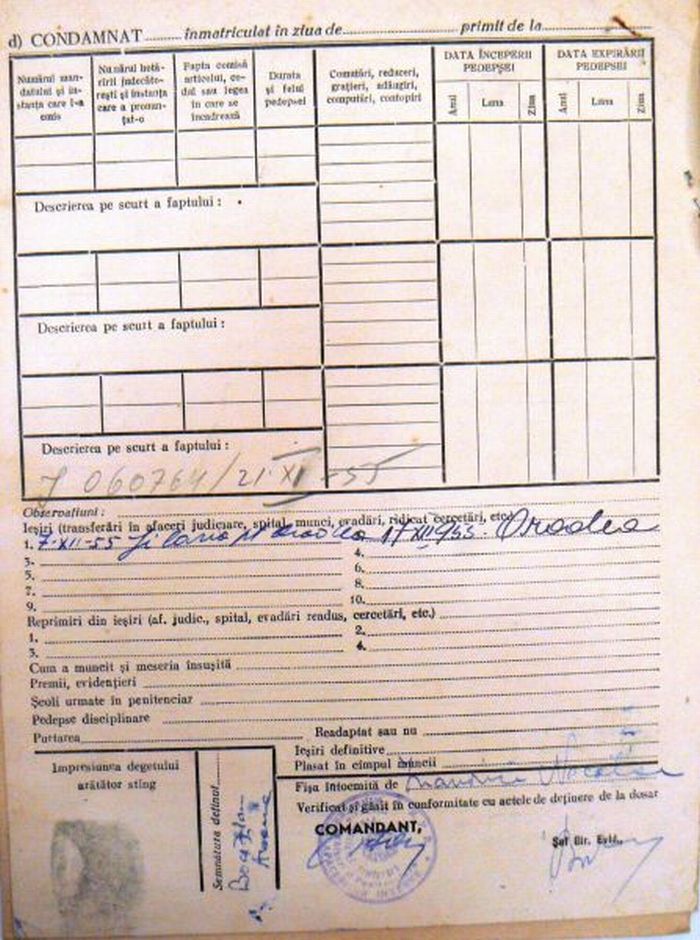 d) CONDAMNAT ......... înmatriculat în ziua de .................... primit de la ....................
Numărul mandatului și instanța care l-a emis
Numărul hotărîrii judecătorești și instanța care a pronunțat-o
Fapta comisă articolul, codul sau legea în care se încadrează
Durata și felul pedepsei
Comutări, reduceri, grațieri, adăugiri, computări, contopiri
DATA ÎNCEPERII PEDEPSEI
Anul Luna Ziua
DATA EXPIRĂRII PEDEPSEI
Anul Luna Ziua
Descrierea pe scurt a faptului :
Descrierea pe scurt a faptului :
Descrierea pe scurt a faptului :
060764/21 XI 55
Observațiuni :
Ieșiri (transferări în afaceri judiciare, spital, munci, evadări, ridicat cercetări, etc.)
1. 7-XII-55 Jilava 17 XII 955. Oradea
3. 4.
5. 6.
7. 8.
9. 10.
Reprimiri din ieșiri (af. judic., spital, evadări readus, cercetări, etc.)
1. 2.
3. 4.
Cum a muncit și meseria însușită
Premii, evidențieri
Școli urmate în penitenciar
Pedepse disciplinare
Purtarea Readaptat sau nu
Ieșiri definitive
Plasat în cîmpul muncii
Impresiunea degetului arătător stîng
Semnătura deținut
Fișa întocmită de
Verificat și găsit în conformitate cu actele de deținere de la dosar
COMANDANT,
Șef Bir. Evid.,